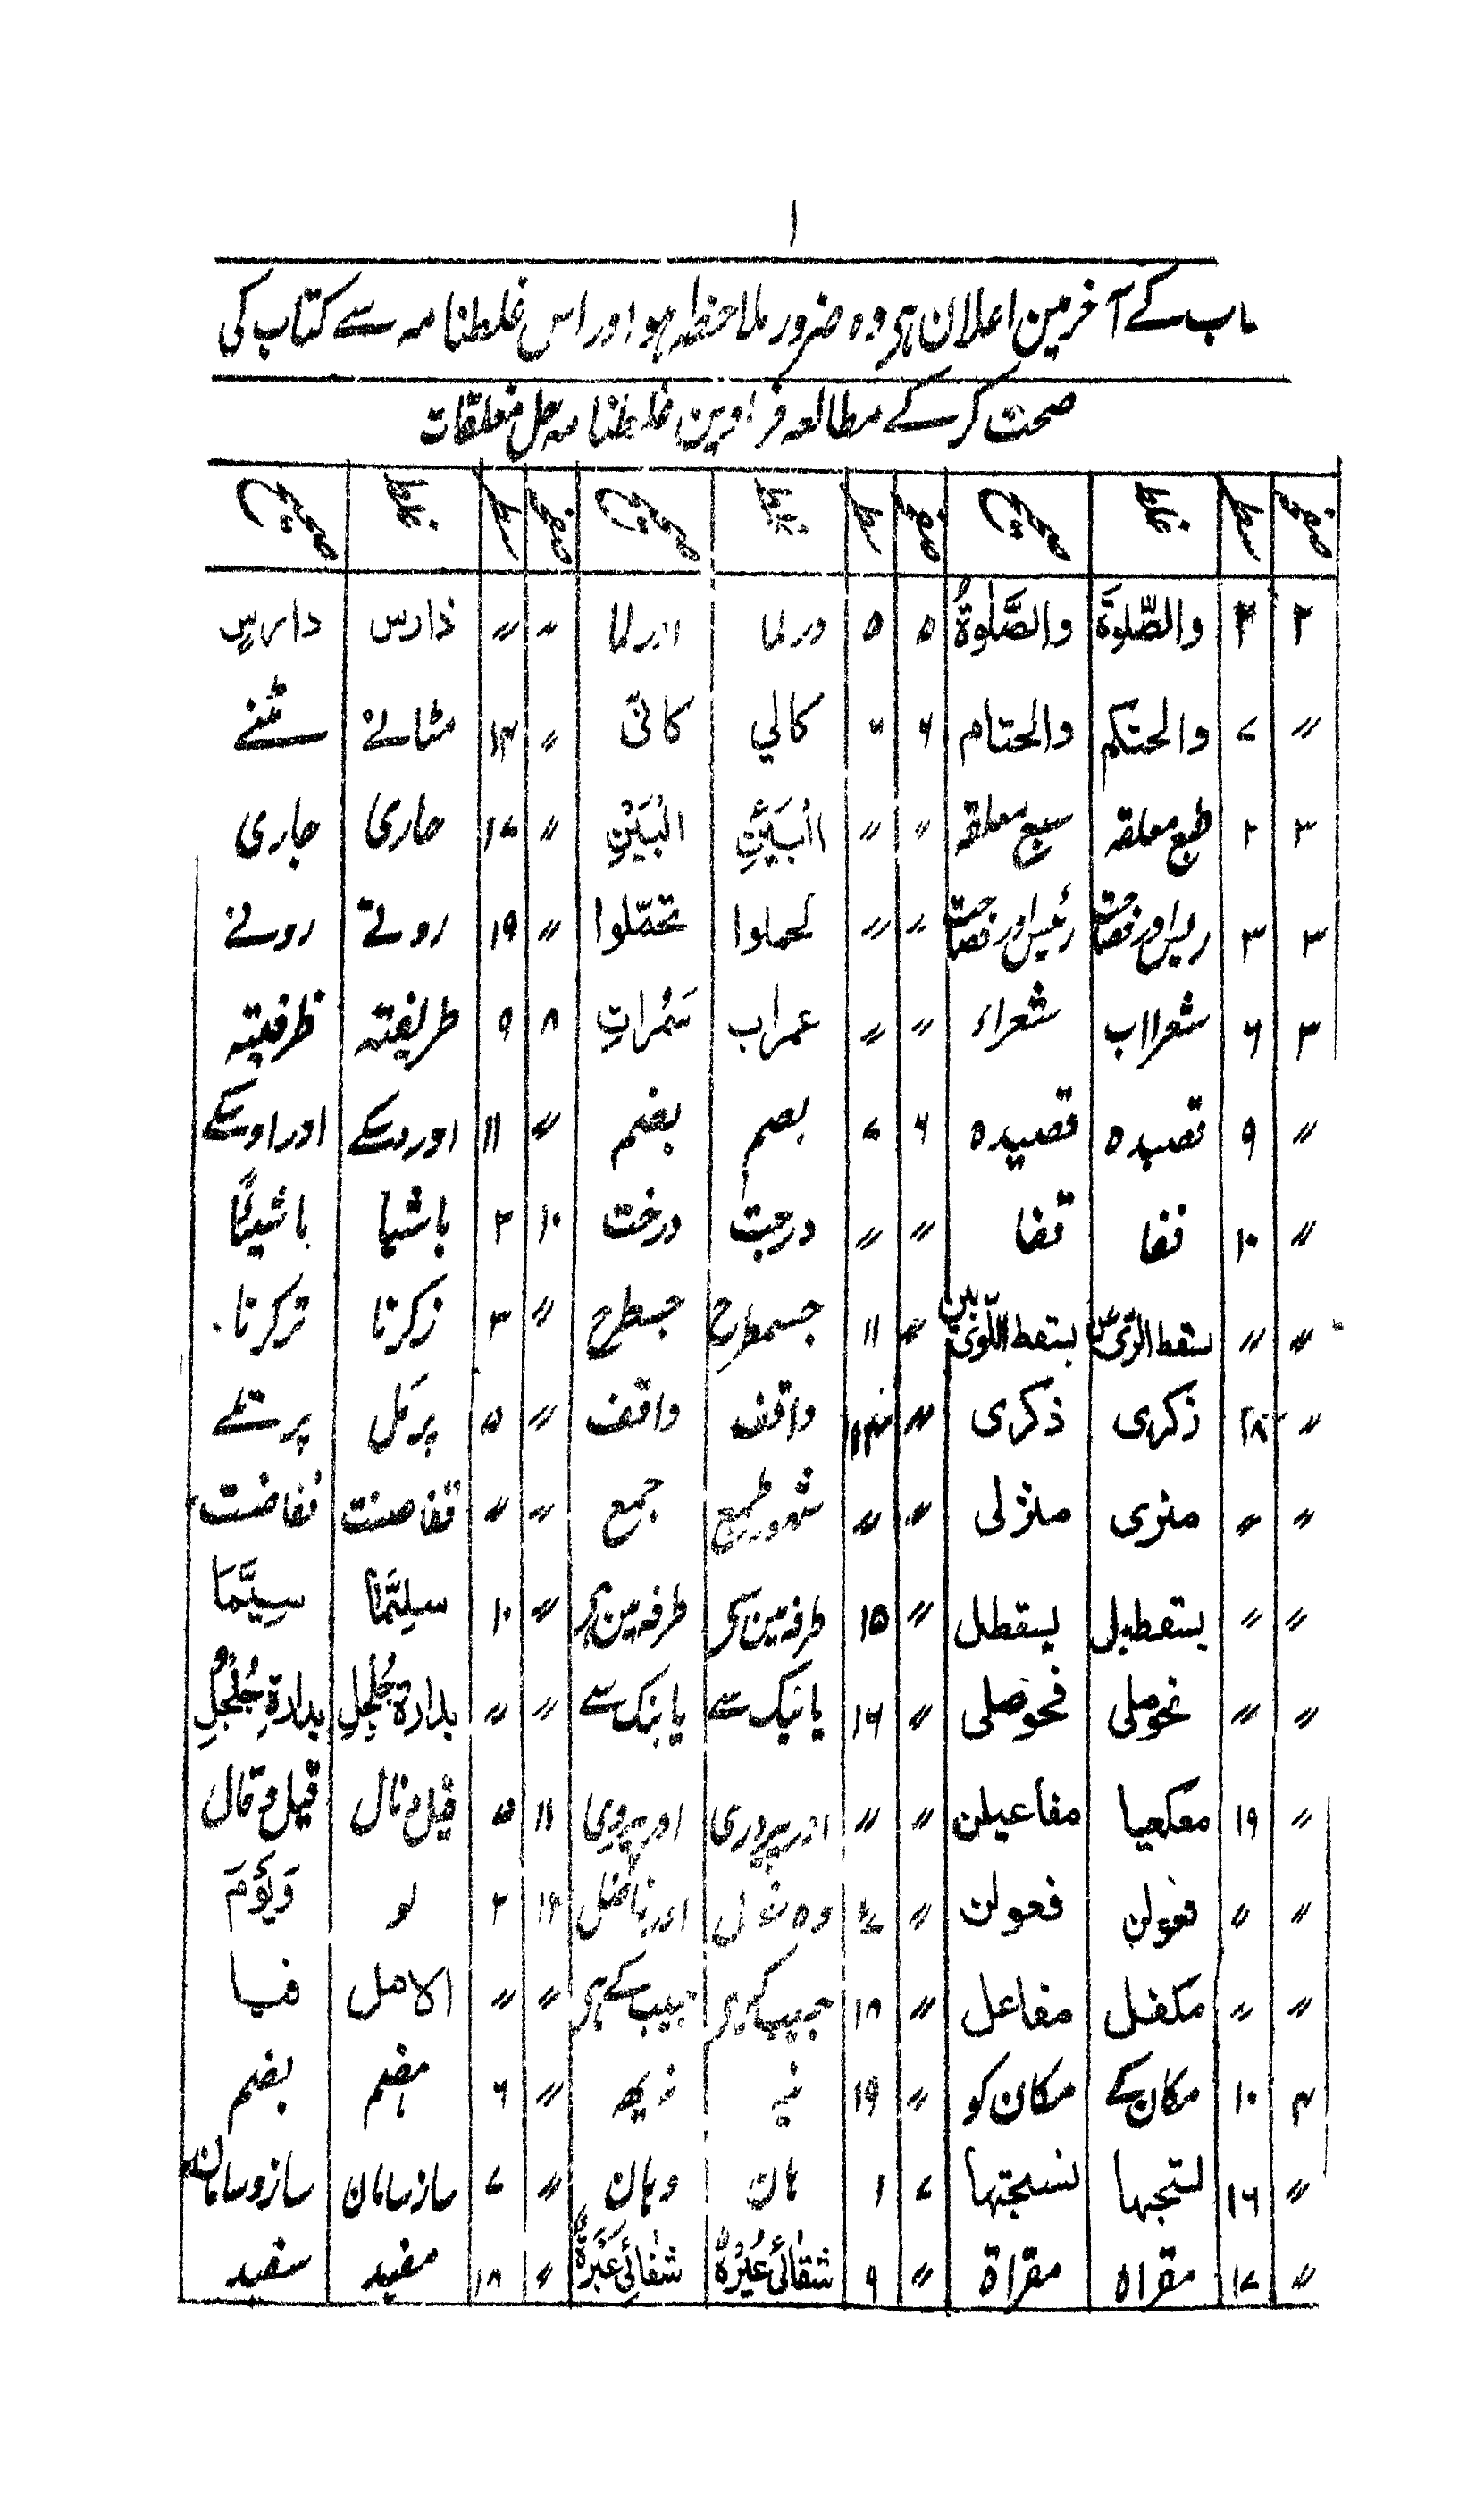 ۱
اب کے آخر مین اعلان ہی وہ ضرور ملاحظہ ہو اور اس غلطنامہ سے کتاب کی
صحت کر کے مطالعہ فرماوین غلطنامہ حل مغلقات
صفحہ سطر غلط صحیح صفحہ سطر غلط صحیح صفحہ سطر غلط صحیح
۲ ۴ والصّلوۃَ والصَّلٰوۃُ ۵ ۵ ورلما اورلما 〃 〃 ذارس دارسٍ
〃 ۷ والحتکم والحتام ۶ ۲ کالي کانی 〃 ۱۴ مٹانے مٹنے
۳ ۲ طبع معلقہ سبع معلقہ 〃 〃 البَیِّنِ البَیْنِ 〃 ۱۷ حاری جاری
۳ ۳ رئیس اور فصاحت 〃 〃 لحملوا تحمّلوا 〃 ۱۹ روتے رونے
۳ ۶ شعرااب شعراء 〃 〃 عمراب سَمُراتِ ۸ ۹ طریفتہ ظرفیتہ
〃 ۹ قصبدہ قصیدہ ۶ ۷ بصم بضم 〃 ۱۱ اوروسکے اور اوسکے
〃 ۱۰ نفا قفا 〃 〃 درجت درخت ۱۰ ۲ باشیا باشیئًا
〃 〃 بسقط اللّوٰی بین 〃 ۱۱ جسمطرح جسطرح 〃 ۳ زکرنا ترکرنا
〃 ۱۸ زکری ذکری 〃 واقف واقف 〃 ۵ پرمَل پر تلے
〃 〃 منزی منزلی 〃 〃 شہور طمع جمع 〃 〃 تفاصنت نفاضت
〃 〃 بتقطبل یسقطل 〃 ۱۵ طرفہ مین کی طرفہ مین ہی 〃 ۱۰ سلیَّمَا سِیَّمَا
〃 〃 نحوملی فحوصلی 〃 ۱۶ یا نیک سے یا بنک سے 〃 〃 بدارۃ جُلجُلِ بدارۃِ جُلْجُلِ
〃 ۱۹ معکعیا مفاعیلن 〃 〃 اور پیروری اور پیروی ۱۱ ۵ قیل ونال قیل و قال
〃 〃 نعولن فعولن 〃 ۱۷ ۱۲ ۲ لو وَیَوْمَ
〃 〃 مکفل مفاعل 〃 ۱۸ حبیب کے ہی 〃 〃 الامل فیا
۴ ۱۰ مکان کے مکان کو 〃 ۱۹ 〃 ۶ ہضم بضم
〃 ۱۶ لتجہا نسجتہا ۷ ۱ ہان وہان 〃 ۷ ساز سامان ساز و سامان
〃 ۱۷ مقراہ مقراۃ 〃 ۹ شقائی عیْرۃٌ شفائی عَبْرَۃٌ 〃 ۱۸ مفید سفید